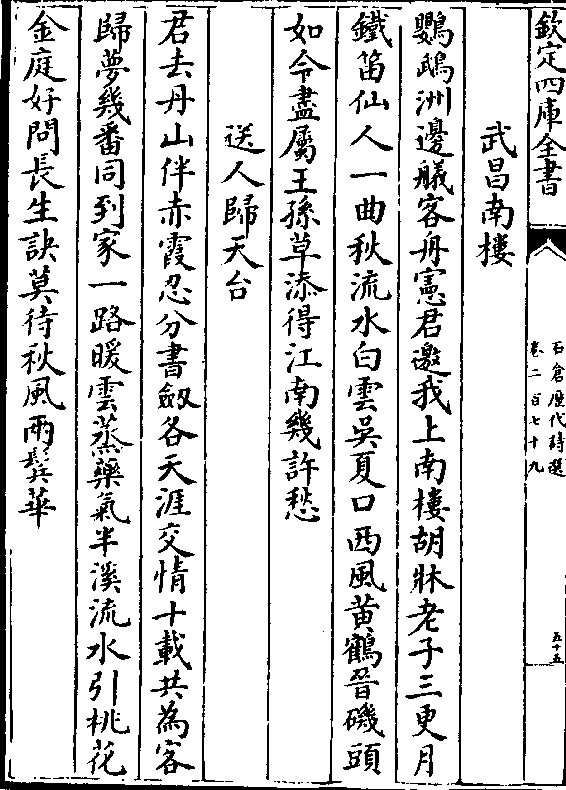 欽定四庫全書
石倉歷代詩選
卷二百七十九
五十五
武昌南樓
鸚鵡洲邊艤客舟憲君邀我上南樓胡牀老子三更月
鐵笛仙人一曲秋流水白雲吳夏口西風黄鶴晉磯頭
如今盡屬王孫草添得江南幾許愁
送人歸天台
君去丹山伴赤霞忍分書劔各天涯交情十載共為客
歸夢幾番同到家一路暖雲蒸藥氣半溪流水引桃花
金庭好問長生訣莫待秋風兩鬂華